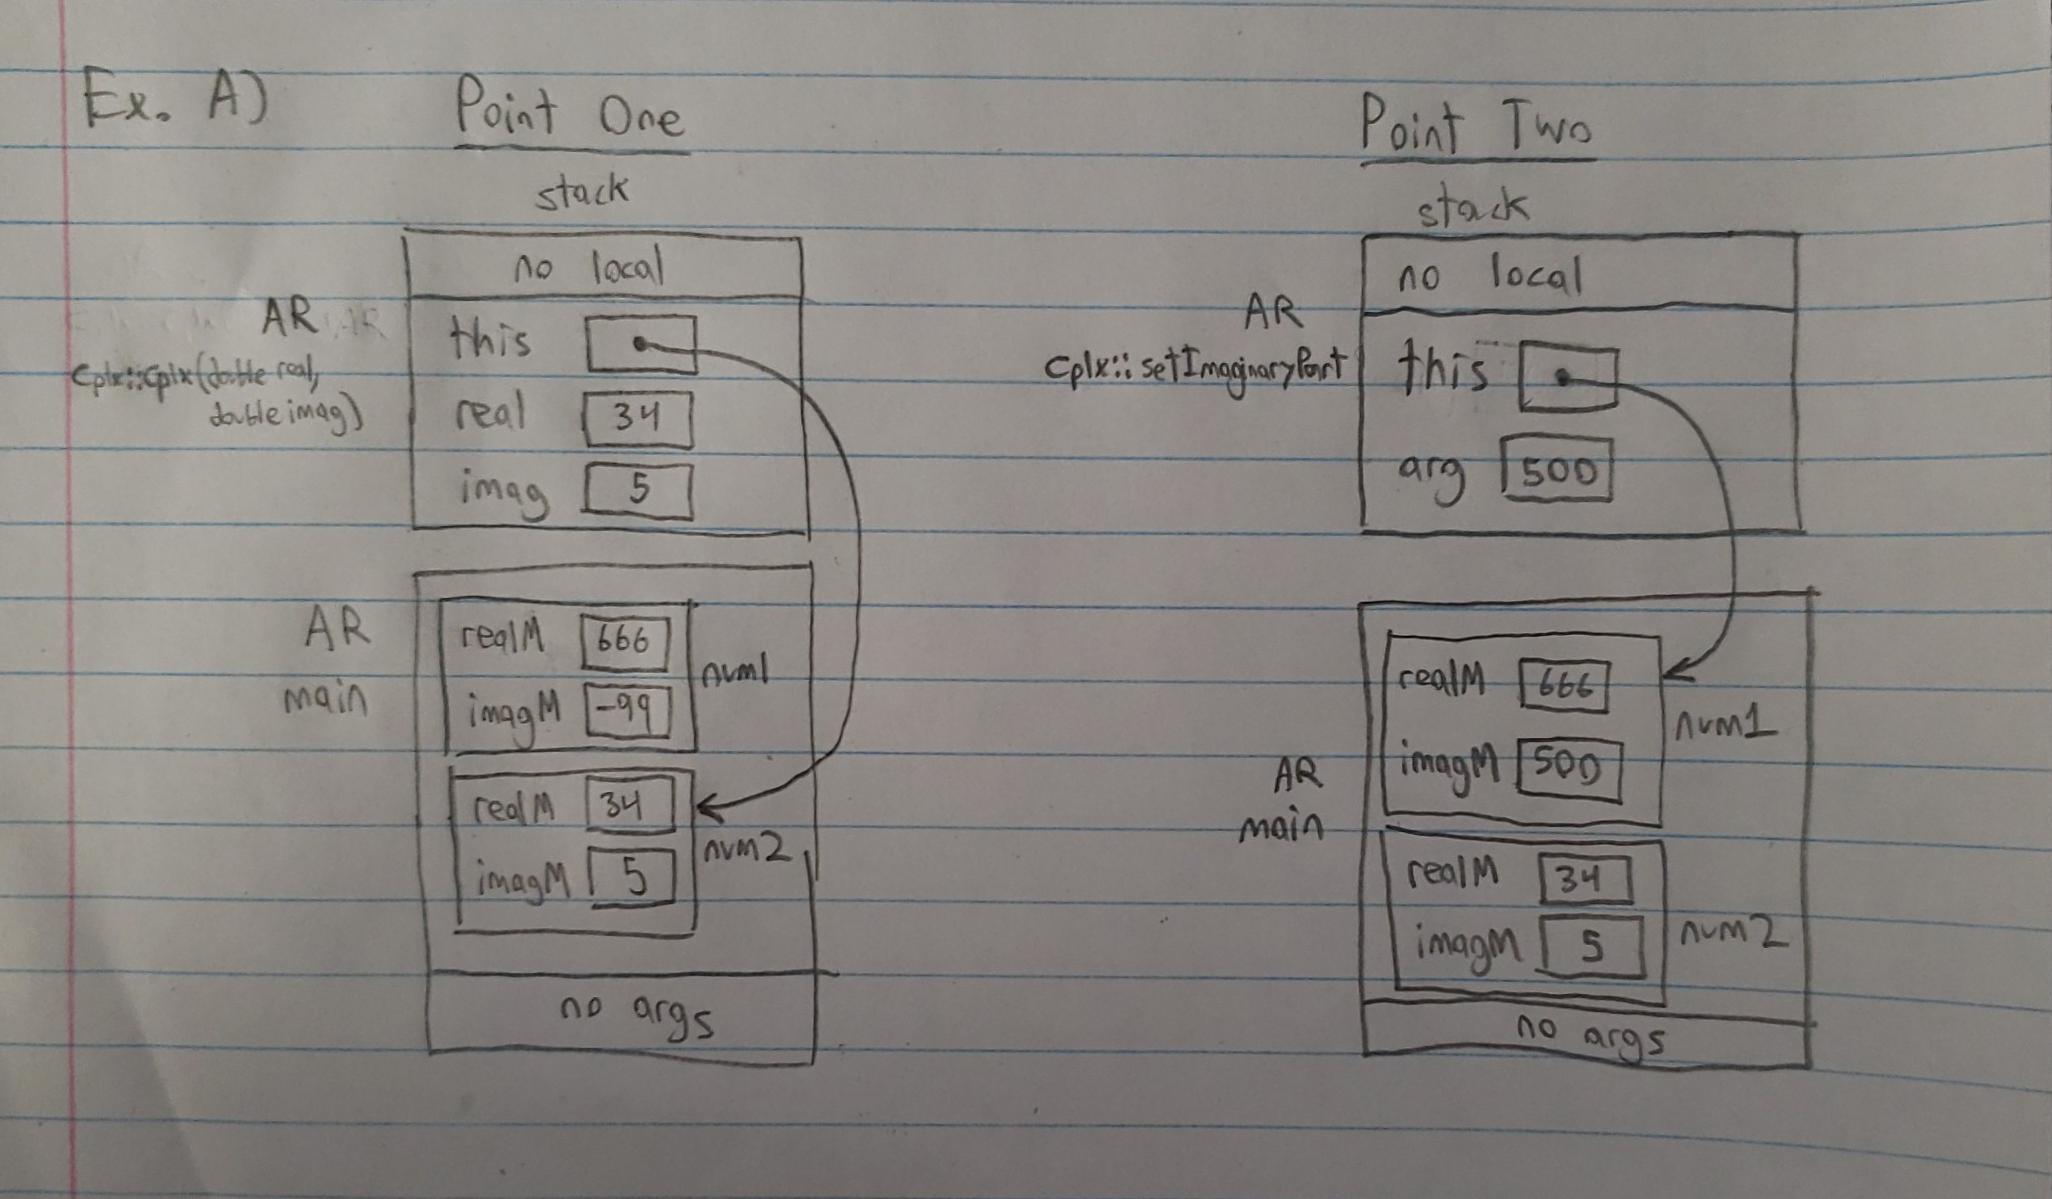 Ex. A)
Point One
stack
no local
AR
Cplx::Cplx(double real,
double imag)
this
real 34
imag 5
AR
main
realM 666
imagM -99
num1
realM 34
imagM 5
num2
no args
Point Two
stack
no local
AR
Cplx::setImaginaryPart
this
arg 500
AR
main
realM 666
imagM 500
num1
realM 34
imagM 5
num2
no args